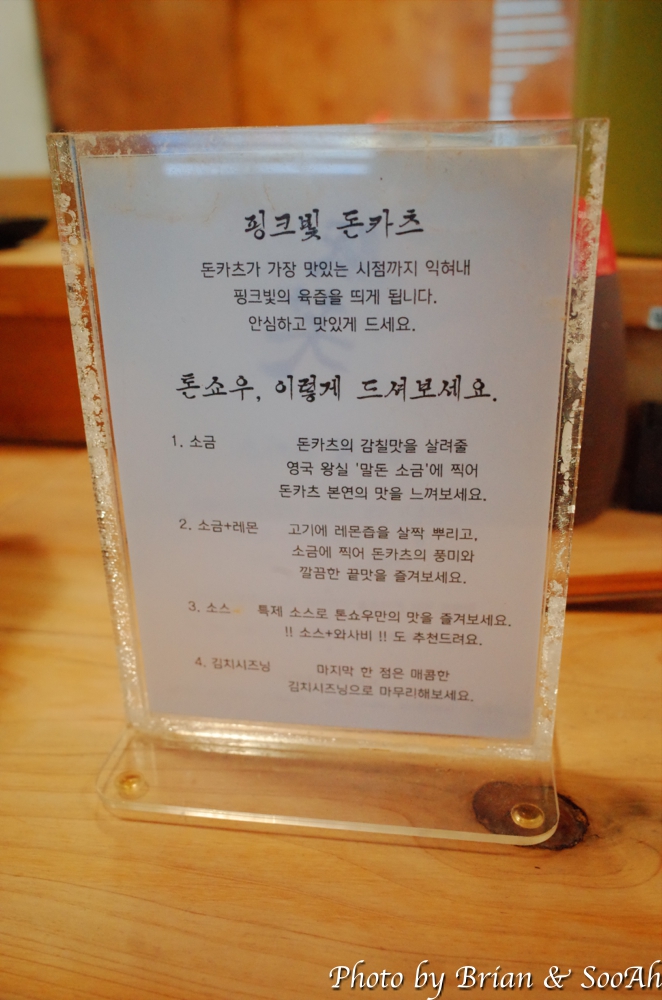 핑크빛 돈카츠
돈카츠가 가장 맛있는 시점까지 익혀내
핑크빛의 육즙을 띄게 됩니다.
안심하고 맛있게 드세요.
톤쇼우, 이렇게 드셔보세요.
1. 소금 돈카츠의 감칠맛을 살려줄
영국 왕실 '말돈 소금'에 찍어
돈카츠 본연의 맛을 느껴보세요.
2. 소금+레몬 고기에 레몬즙을 살짝 뿌리고,
소금에 찍어 돈카츠의 풍미와
깔끔한 끝맛을 즐겨보세요.
3. 소스 특제 소스로 톤쇼우만의 맛을 즐겨보세요.
!! 소스+와사비 !! 도 추천드려요.
4. 김치시즈닝 마지막 한 점은 매콤한
김치시즈닝으로 마무리해보세요.
Photo by Brian & SooAh